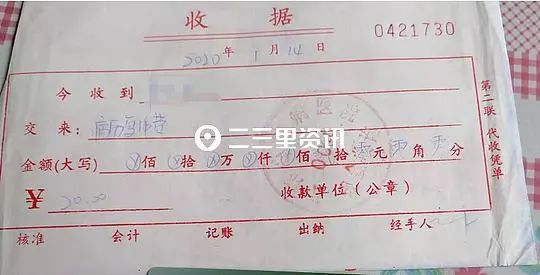 收据
0421730
2020年1月14日
今收到
交来：病历复印费
二三里资讯
金额(大写) 佰 拾 万 仟 佰 拾 元零角零分
¥ 20.00
收款单位(公章)
核准 会计 记账 出纳 经手人
第二联 代收凭单